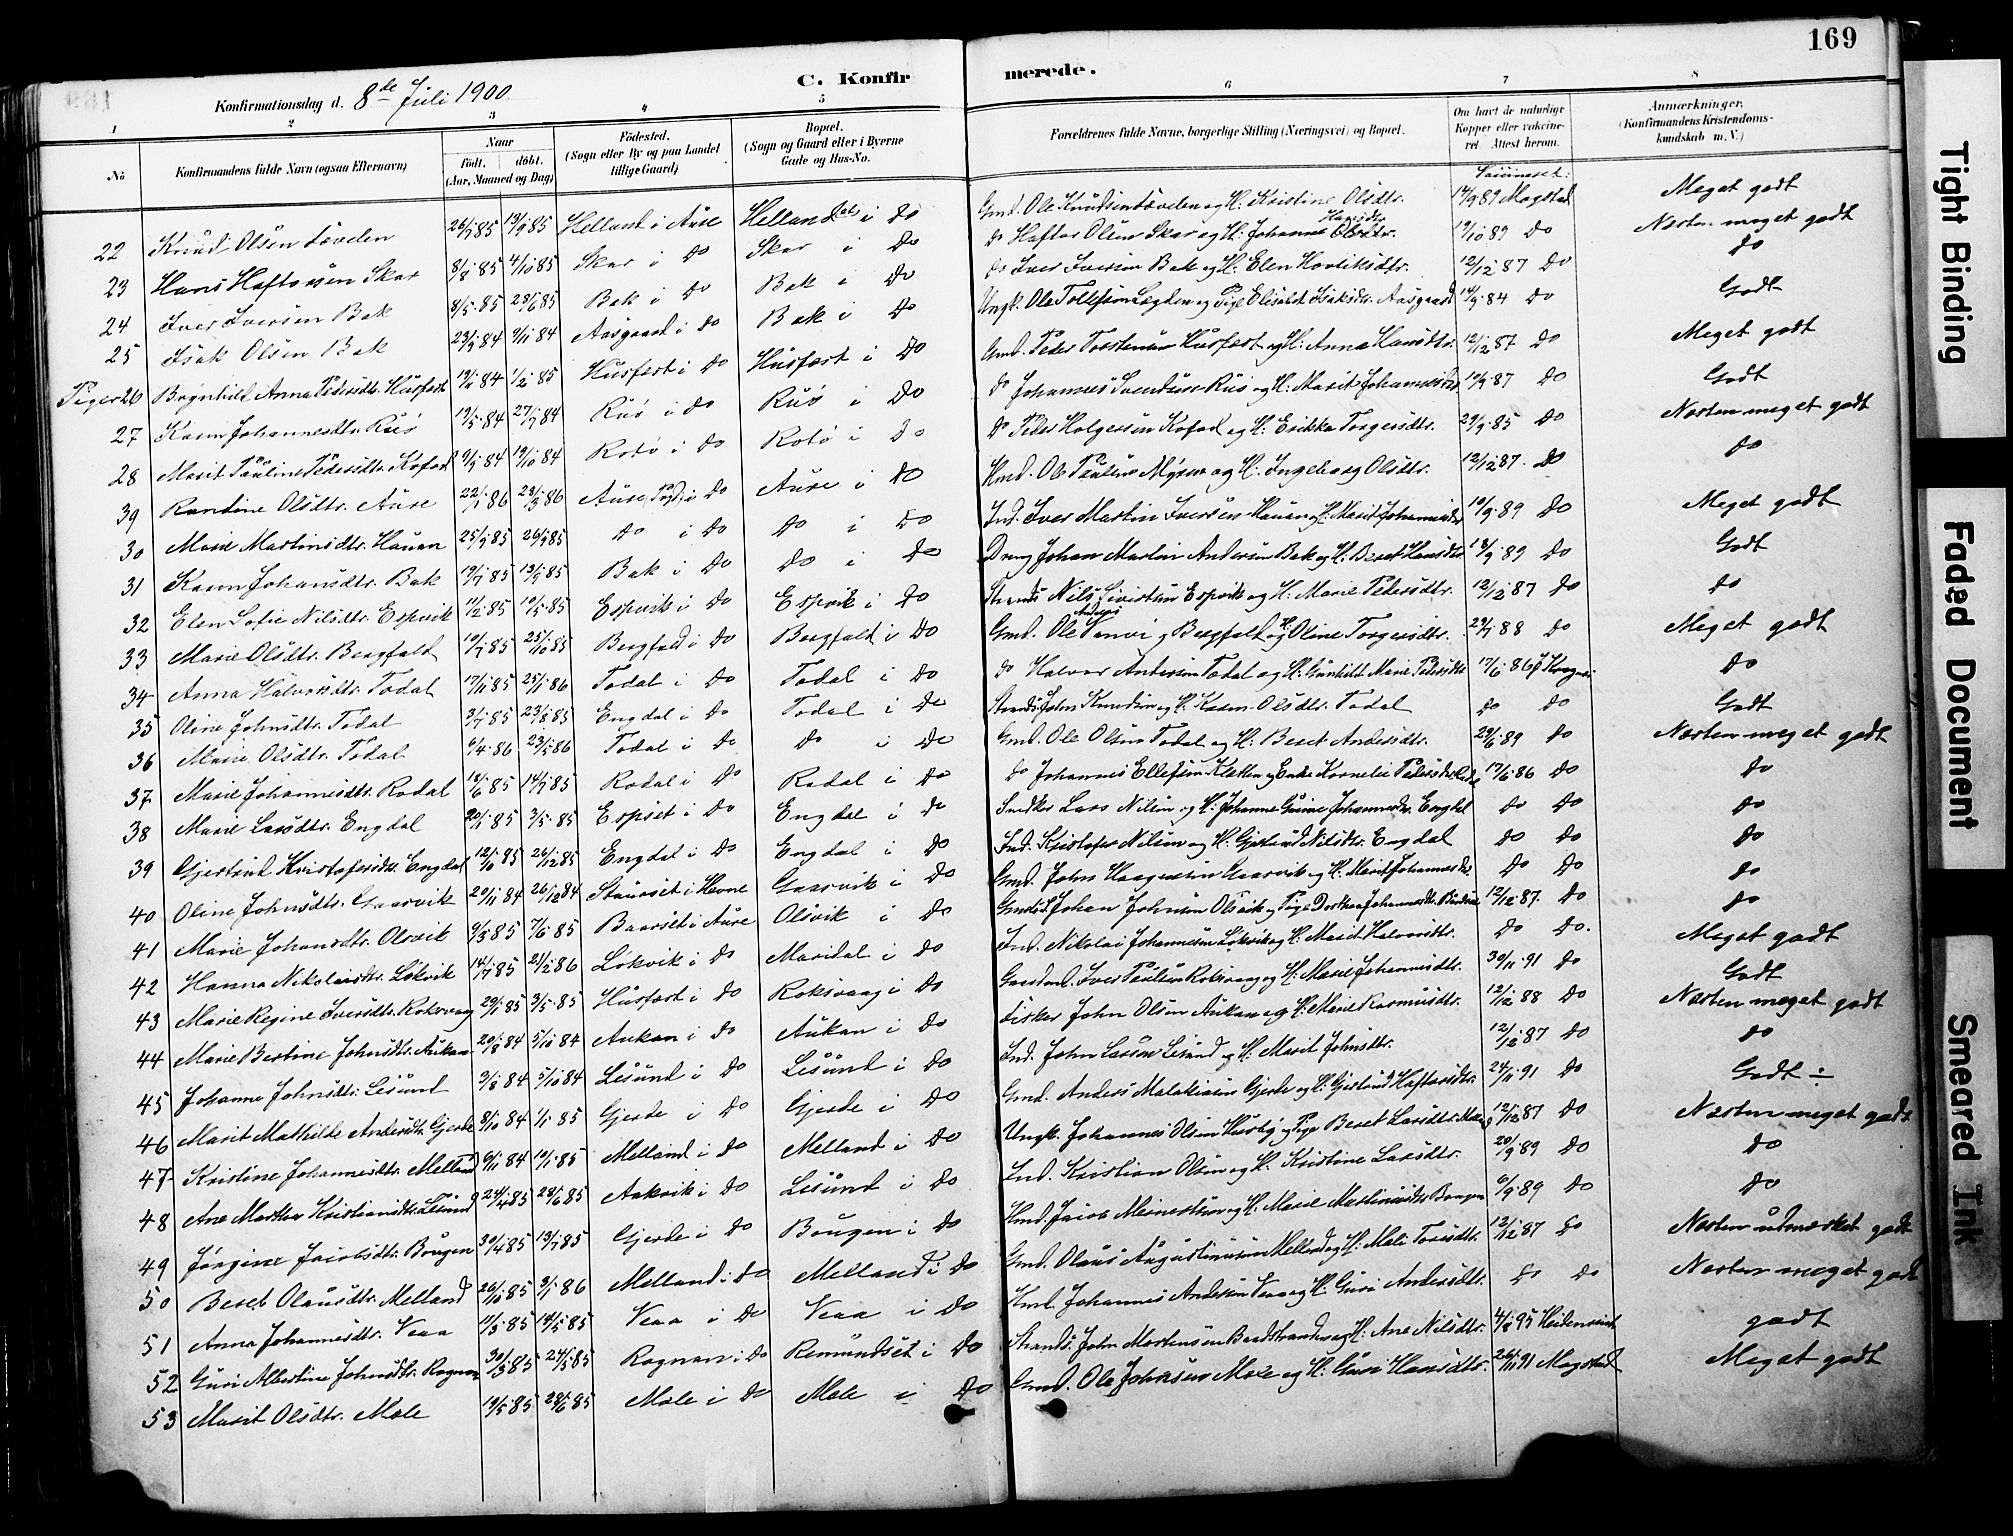 169
C. Konfirmerede.
Konfirmationsdag d. 8de Juli 1900.
1 2 3 4 5 6 7 8
No
Konfirmandens fulde Navn (ogsaa Efternavn)
Naar
født. døbt.
(Aar, Maaned og Dag)
Fødested.
(Sogn eller By og paa Landet tillige Gaard)
Bopæl.
(Sogn og Gaard eller i Byerne Gade og Hus-No.
Forældrenes fulde Navne, borgerlige Stilling (Næringsvei) og Bopæl.
Om havt de naturlige Kopper eller vaccineret. Attest herom.
Anmærkninger.
(Konfirmandens Kristendomskundskab m. V.)
22 Knud Olsen 26/7 85 13/9 85 Helland i Aure Helland i Do Gmd. Ole Knudsen og H. Kristine Olsdtr. 14/9 89 Magstad Meget godt
23 Hans Haftorsen Skar 8/8 85 4/10 85 Skar i Do Skar i Do Do Haftor Olsen Skar og H. Johanna 19/10 89 Do Næsten meget godt
24 Iver Iversen Bak 8/5 85 28/6 85 Bak i Do Bak i Do Do Iver Iversen Bak og H. Elen 12/12 87 Do Do
25 Isak Olsen Bak 23/9 84 9/11 84 Aasgaard i Do Bak i Do Ungk. Ole Tollefsen og Pige Elisabet Isaksdtr. Aasgaard 14/9 84 Do Godt
Piger 26 Brynhild Anna Pedersdtr. Husfest 1/2 85 Husfest i Do Husfest i Do Gmd. Peder Torstensen Husfest og H. Anna Hansdtr. 12/12 87 Do Meget godt
27 Karen Johannesdtr. Ruø 19/5 84 27/7 84 Ruø i Do Ruø i Do Do Johannes Ruø og H. Marit Johannesdtr. 10/9 87 Do Godt
28 Marit Pauline Pedersdtr. 9/9 84 19/10 84 i Do i Do Do Peder Holgersen og H. Erikka Torgersdtr. 29/9 85 Do Næsten meget godt
39 Randine Olsdtr. Aure 22/1 86 28/3 86 Aure i Do Aure i Do Hmd. Ole Paulsen og H. Ingeborg Olsdtr. 12/12 87. Do Do
30 Marie Martinsdtr. Hauan 25/7 85 Do i Do Do i Do Ind. Iver Martin Iversen Hauan og H. Marit Johannesdtr. 10/9 89 Do Meget godt
31 Karen Johansdtr. Bak Bak i Do Do i Do Johan Martin Andersen Bak og H. Beret Hansdtr. 13/9 89 Do Godt
32 Elen Sofie Nilsdtr. Espvik 11/2 85 10/5 85 Espvik i Do Espvik i Do Nils Espvik og H. Marie Pedersdtr. 12/12 87 Do Do
33 Marie Olsdtr. Bergfald 25/10 85 Bergfald i Do Bergfald i Do Gmd. Ole Bergfald og H. Oline Torgersdtr. 88 Do Meget godt
34 Anna Halvorsdtr. Todal 17/11 85 25/1 86 Todal i Do Todal i Do Do Halvor Andersen Todal og H. Gunhild Marie Pedersdtr. 17/6 86 Do
35 Oline Johnsdtr. Todal 23/8 85 Engdal i Do Todal i Do John Knudsen og H. Karen Olsdtr. Todal Do Do Godt
36 Marie Olsdtr. Todal 6/4 86 23/5 86 Todal i Do Do i Do Gmd. Ole Olsen Todal og H. Beret Andersdtr. 29/6 89 Do Næsten meget godt
37 Marie Johannesdtr. Rodal 85 85 Rodal i Do Rodal i Do Do Johannes Ellefsen og Enke Kornelie Pedersdtr. 17/6 86 Do Do
38 Marie Larsdtr. Engdal 20/1 85 3/5 85 Espset i Do Engdal i Do Lars Nilsen og H. Johanne Johannesdtr. Engdal Do Do Do
39 Gjertrud Kristofersdtr. Engdal 12/10 85 26/12 85 Engdal i Do Engdal i Do Ind. Kristofer Nilsen og H. Gjertrud Nilsdtr. Engdal Do Do Do
40 Oline Johnsdtr. Gaarvik 20/11 84 26/12 84 Staurset i Hevne Gaarvik i Do Gmd. John Haagensen Gaarvik og H. Marit Johannesdtr. Do Do Do
41 Marie Johansdtr. Olsvik 9/3 85 7/6 85 Baarset i Aure Olsvik i Do Johan Johnsen Olsvik og Pige Dorthea Johannesdtr. 12/12 87. Do Do
42 Hanna Nikolaisdtr. Løkvik 14/7 85 21/2 86 Løkvik i Do Mardal i Do Ind. Nikolai Johannesen Løkvik og H. Marit Halvorsdtr. Do Do. Meget godt
43 Marie Regine Iversdtr. Roksvaag 29/1 85 3/5 85 Husfest i Do Roksvaag i Do Iver Paulsen Roksvaag og H. Marie Johannesdtr. 30/11 91 Do Godt
44 Marie Bertine Johnsdtr. Aukan 20/8 84 5/10 84 Aukan i Do Aukan i Do Fisker John Olsen Aukan og H. Marie Rasmusdtr. 12/12 88 Do Næsten meget godt
45 Johanna Johnsdtr. Lesund 3/8 84 5/10 84 Lesund i Do Lesund i Do Ind. John Larsen Lesund og H. Marit Johnsdtr. 12/12 87 Do Do
46 Marit Mathilde Andersdtr. Gjerde 8/10 84 1/1 85 Gjerde i Do Gjerde i Do Gmd. Anders Malakiasen Gjerde og H. Gjertrud Haftorsdtr. 24/11 91 Do Godt ÷
47 Kristine Johannesdtr. Melland 9/11 84 10/1 85 Melland i Do Melland i Do Ungk. Johannes Olsen Husby og Pige Beret Larsdtr. 12/12 87 Do Næsten meget godt
48 Ane Marthea Kristiansdtr. Lesund 24/4 85 28/6 85 Aakvik i Do Lesund i Do Ind. Kristian Olsen og H. Kristine Larsdtr. 20/9 89 Do Do
49 Jørgine Jacobsdtr. Bougen 30/4 85 13/7 85 Gjerde i Do Bougen i Do Hmd. Jacob og H. Marie Martinusdtr. Bougen 6/9 89 Do Do
50 Beret Olausdtr. Melland 26/10 85 3/1 86 Melland i Do Melland i Do Gmd. Olaus Augustinusen Melland og H. Mali Toresdtr. 12/12 87 Do Næsten udmærket godt
51 Anna Johannesdtr. Veaa 11/3 85 14/5 85 Veaa i Do Veaa i Do Hmd. Johannes Andersen Veaa og H. Guri Andersdtr. Do Do Næsten meget godt
52 Guri Albertine Johnsdtr. Rognan 30/3 85 24/5 85 Rognan i Do Remundset i Do Strands. John Mortensen og H. Ane Nilsdtr. 95 godt
53 Marit Olsdtr. Mole 19/5 85 28/6 85 Mole i Do Mole i Do Gmd. Ole Johnsen Mole og H. Guri Hansdtr. 26/11 91 Magstad Meget godt
Tight Binding
Faded Document
Smeared Ink